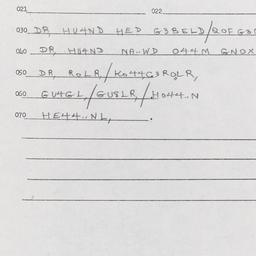 021 022
030 DA HU4ND HED G3BELD/ROF G3
060 DA HU4ND NA..WD 044M GNOX
050 DA ROLA/K044G3ROLR,
060 GU4GL/GUSLR/H044..N
070 HE44..NL, .